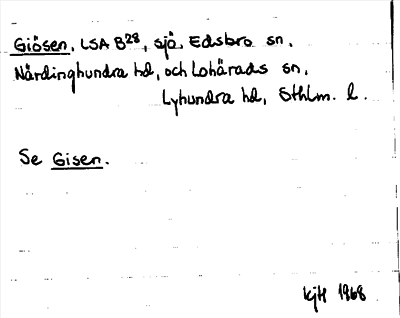 Giösen, LSA B28, sjö, Edsbro sn,
Närdinghundra hd, och Lohärads sn,
Lyhundra hd, Sthlm. l.
Se Gisen.
kjH 1968